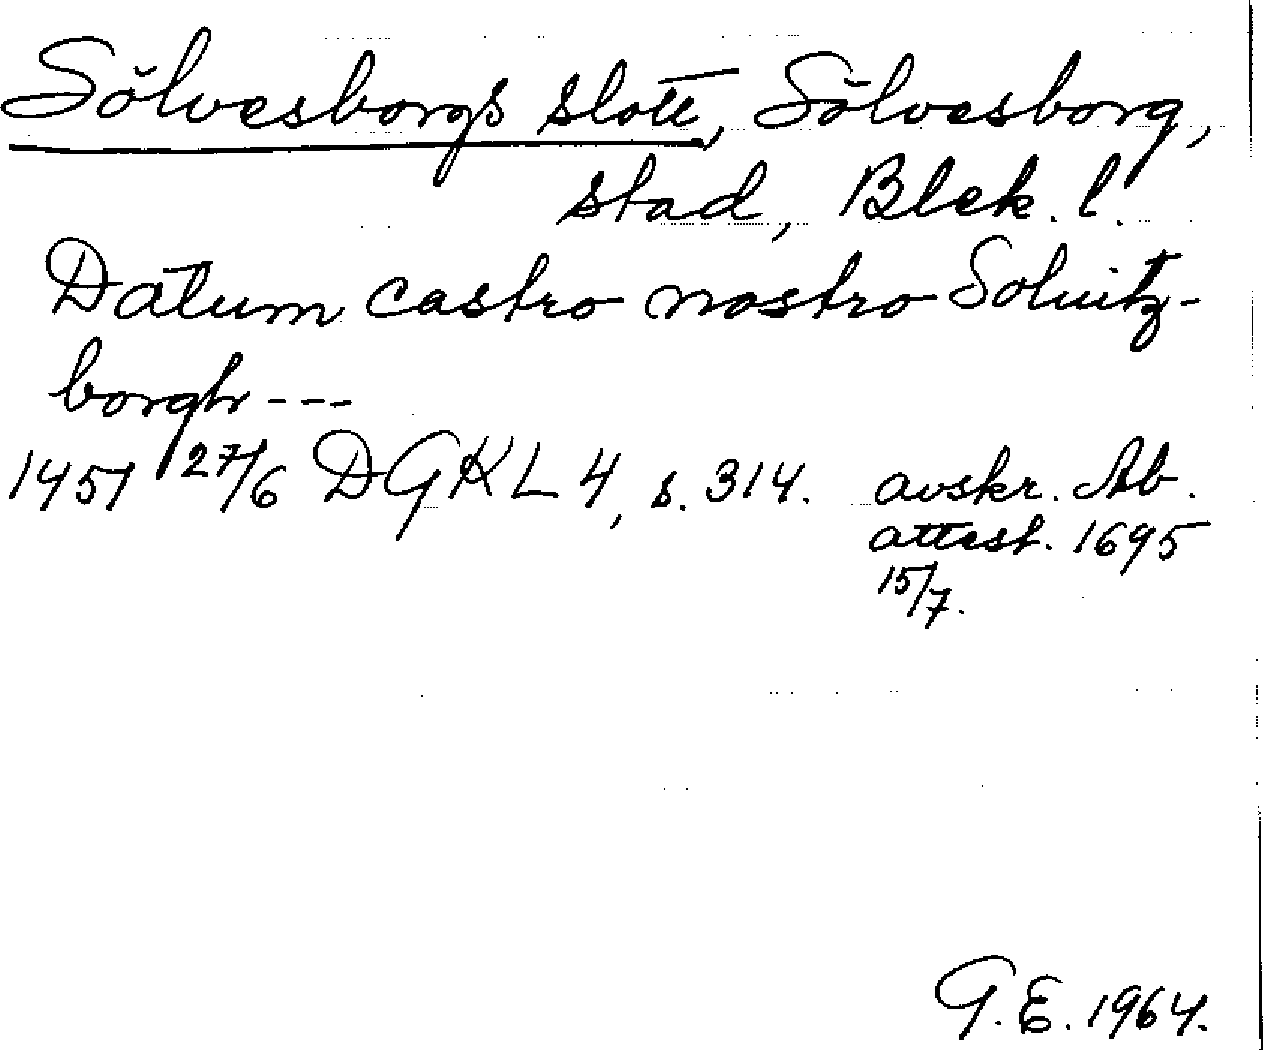 Sölvesborgs slott, Sölvesborg,
stad, Blek. l.
Datum castro nostro Soluitz-
borgh ---
1451 27/6 DGKL 4, s. 314. avskr. Ab.
attest. 1695
15/7.
G.E. 1964.